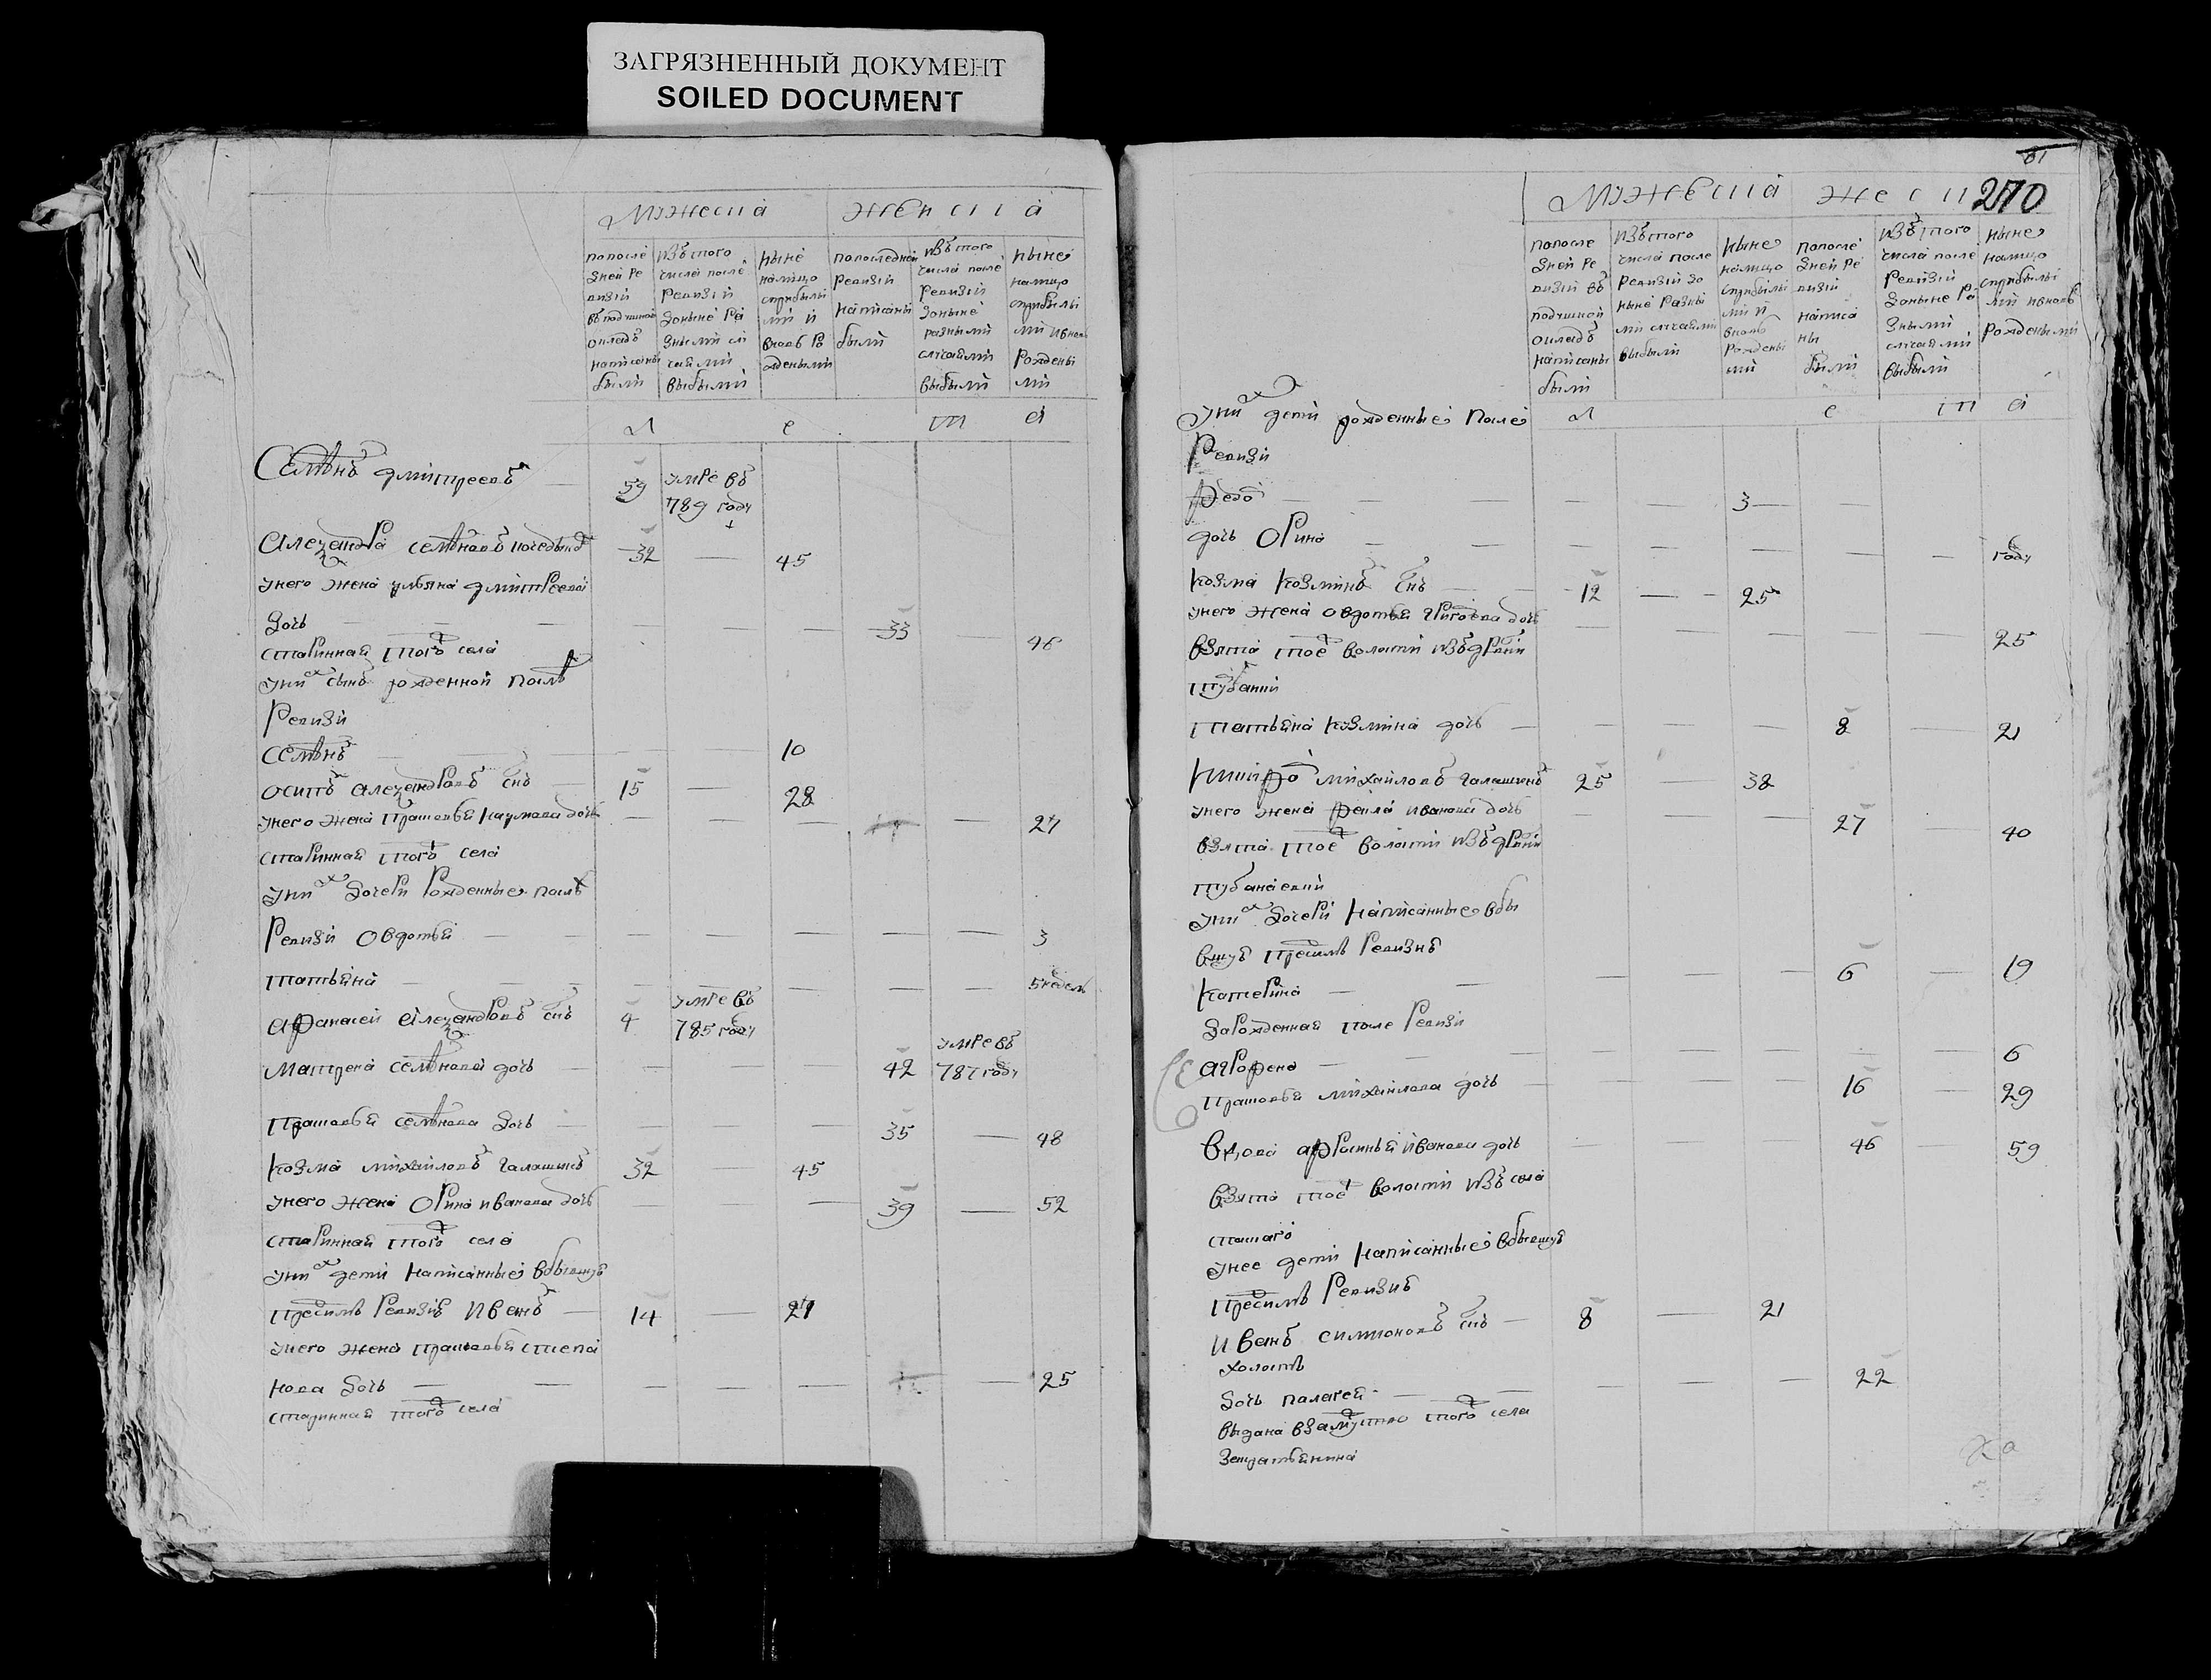 ЗАГРЯЗНЕННЫЙ ДОКУМЕНТ
SOILED DOCUMENT
мужеска женска
попосле
дней ре
визии
въ подушной
окладъ
написаны
были
изъ того
числа после
ревизии
до ныне ра
зными слу
чаями
выбыли
ныне
налицо
с прибылы
ми и
вновь ро
жденными
по последней
ревизии
написаны
были
изъ того
числа после
ревизии
до ныне
разными
случаями
выбыли
ныне
налицо
с прибылы
ми и вновь
рождены
ми
л е т а
Семенъ дмитреевъ 59 умре въ
789 году
Александра семеновъ 32 45
у него жена ульяна дмитреева
дочь 33 46
старинная того села
у них сынъ рожденной после
ревизи
Семенъ 10
осипъ александровъ снъ 15 28
у него жена прасковья наумова дочь 27
старинная того села
у них дочери рожденные после
ревизи овдотья 3
татьяна 5 недель
афанасей александровъ снъ 4 умре въ
785 году
матрена семенова дочь 42 умре въ
787 году
прасковья семенова дочь 35 48
козма михайловъ галашинъ 32 45
у него жена орина иванова дочь 39 52
старинная того села
у них дети написанные в бывшую
пред симъ ревизию иванъ 14 27
у него жена прасковья степа
нова дочь 25
старинная того села
61
270
мужеска женс
попосле
дней ре
визии въ
подушной
окладъ
написаны
были
изъ того
числа после
ревизии до
ныне разны
ми случаями
выбыли
ныне
налицо
с прибылы
ми и
вновь
рождены
ми
попосле
дней ре
визии
написа
ны
были
изъ того
числа после
ревизии
до ныне ра
зными
случаями
выбыли
ныне
налицо
с прибылы
ми и вновь
рожденными
л е т а
у них дети рожденные после
ревизи
федо 3
дочь орина году
козма козминъ снъ 12 25
у него жена овдотья григорева дочь 25
взята тое волости изъ дрвни
татьяна козмина дочь 8 21
никифо михайловъ галашинъ 25 38
у него жена фекла иванова дочь 27 40
взята тое волости изъ дрвни
у них дочери написанные в бы
вшую пред симъ ревизию
катерина 6 19
да рожденная после ревизи
аграфена 6
прасковья михайлова дочь 16 29
вдова афросинья иванова дочь 46 59
взята тое волости изъ села
у нее дети написанные в бывшую
пред симъ ревизию
иванъ симионовъ снъ 8 21
холостъ
дочь палагея 22
выдана в замуство того села